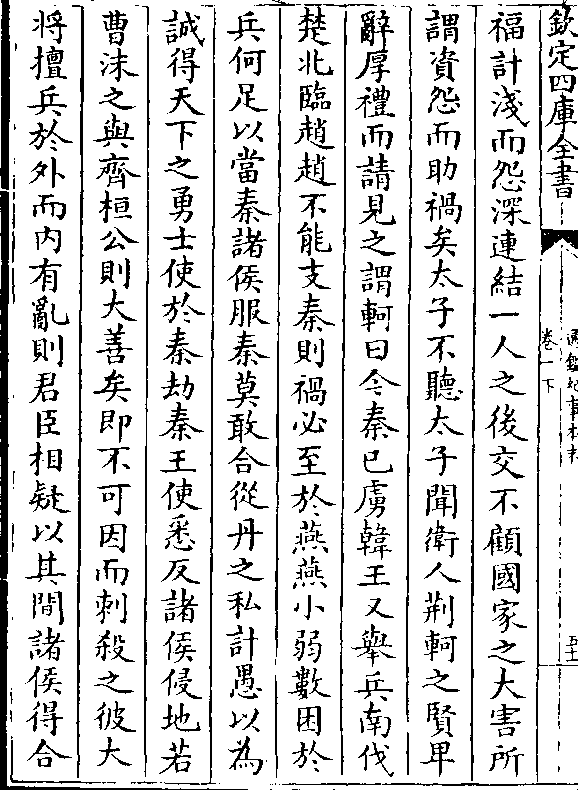 欽定四庫全書
通鑑紀事本末
卷一下
福計淺而怨深連結一人之後交不顧國家之大害所
謂資怨而助禍矣太子不聽太子聞衛人荆軻之賢卑
辭厚禮而請見之謂軻曰今秦已虜韓王又舉兵南伐
楚北臨趙趙不能支秦則禍必至於燕燕小弱數困於
兵何足以當秦諸侯服秦莫敢合從丹之私計愚以為
誠得天下之勇士使於秦劫秦王使悉反諸侯侵地若
曹沫之與齊桓公則大善矣即不可因而刺殺之彼大
将擅兵於外而内有亂則君臣相疑以其間諸侯得合